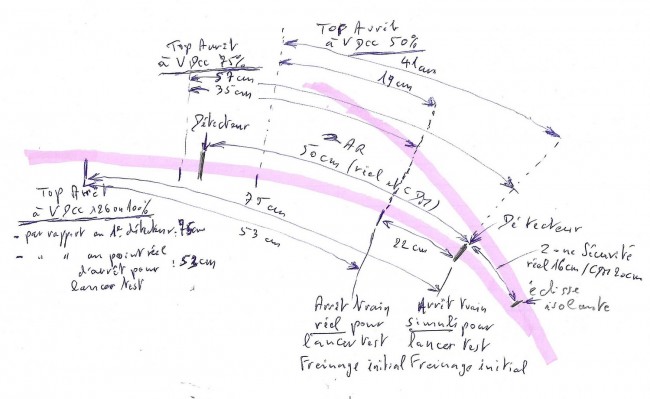 Top Arrêt
à VDcc 50%
41cm
19cm
Top Arrêt
à VDcc 75%
57cm
35cm
Détecteur
AR
50cm (réel et CDM)
Top Arrêt
à VDcc 126 ou 100%
- par rapport au 1er détecteur: 75cm
- " " au point réel
d'arrêt pour : 53cm
lancer test
75
cm
53 cm
22cm
Détecteur
Zone Sécurité
réel 16cm/CDM 20cm
éclisse
isolante
Arrêt train
réel pour
lancer test
Freinage initial
Arrêt train
simulé pour
lancer test
Freinage initial